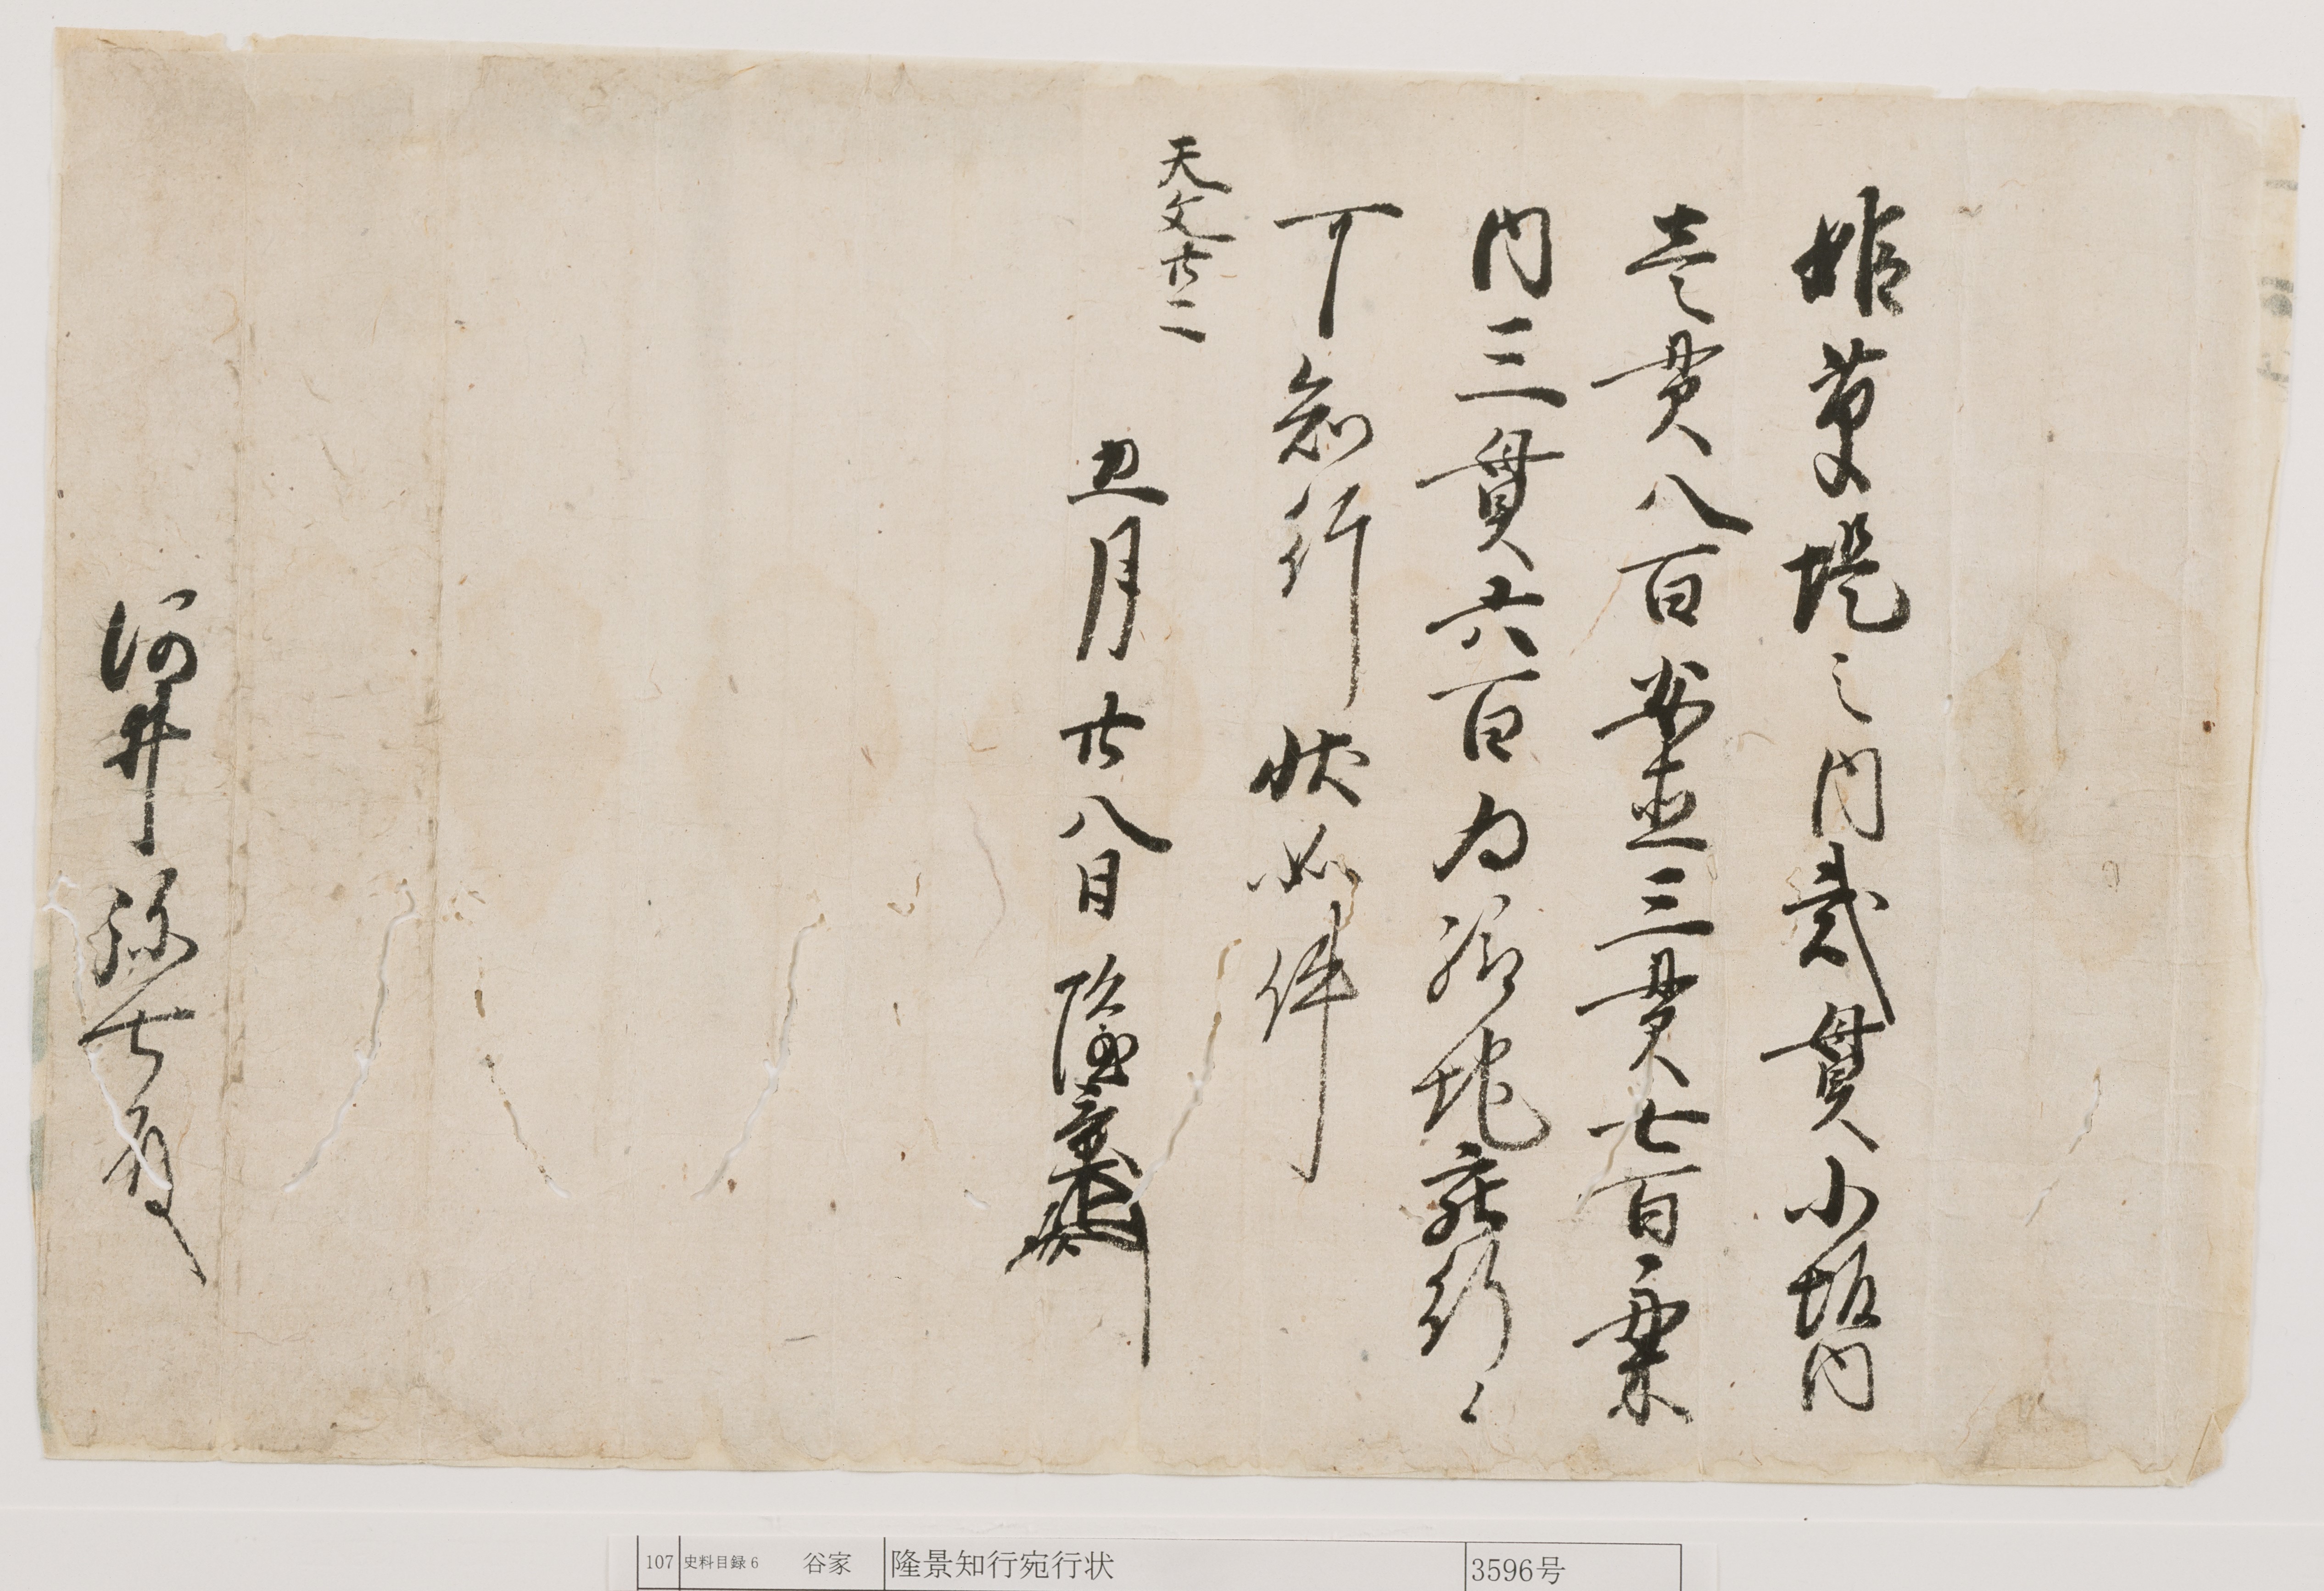 姫草堤之内貳貫小坂内
壱貫八百安直三貫七百
内三貫六百為給地宛行之
可知行状如件
天文廿二
五月廿八日 隆景
河井弥七殿
107 史料目録6 谷家 隆景知行宛行状 3596号